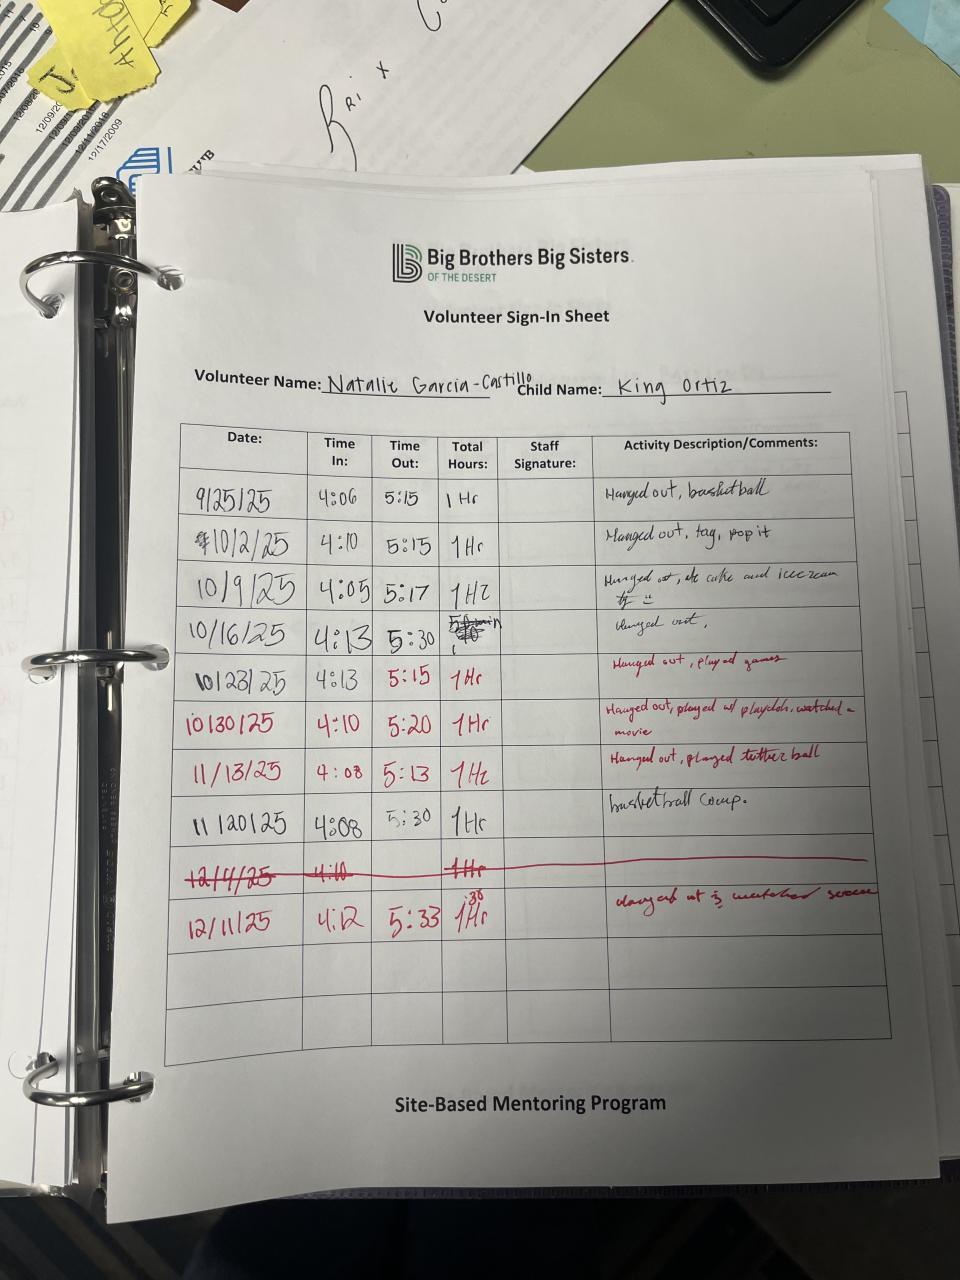 Ahtd
J
12/08/20
12/09/20
12/09/1
12/09/201
12/11/2018
12/17/2009
RRi x
Big Brothers Big Sisters.
OF THE DESERT
Volunteer Sign-In Sheet
Volunteer Name: Natalie Garcia-Castillo Child Name: King Ortiz
Date: Time In: Time Out: Total Hours: Staff Signature: Activity Description/Comments:
9/25/25 4:06 5:15 1 Hr Hanged out, basketball
10/2/25 4:10 5:15 1Hr Hanged out, tag, pop it
10/9/25 4:05 5:17 1Hr Hanged out, ate cake and icecream
10/16/25 4:13 5:30 50 min Hanged out,
10/23/25 4:13 5:15 1Hr Hanged out, played games
10/30/25 4:10 5:20 1Hr Hanged out, played w/ playdoh, watched a
movie
11/13/25 4:08 5:13 1Hr Hanged out, played tutther ball
11/20/25 4:08 5:30 1Hr basketball comp.
12/4/25 4:10 1Hr
12/11/25 4:12 5:33 1Hr 30 watched
Site-Based Mentoring Program